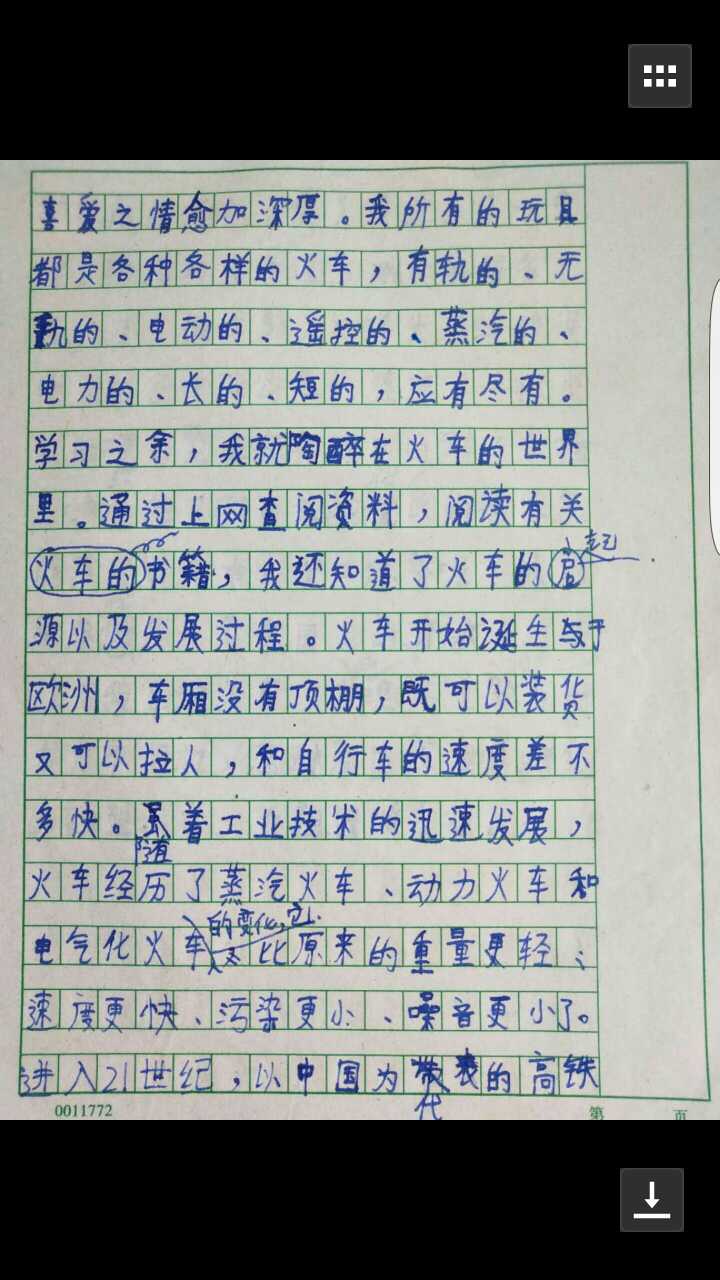 喜爱之情愈加深厚。我所有的玩具
都是各种各样的火车，有轨的、无
轨的、电动的、遥控的、蒸汽的、
电力的、长的、短的，应有尽有。
学习之余，我就陶醉在火车的世界
里。通过上网查阅资料，阅读有关
起
火车的书籍，我还知道了火车的启
源以及发展过程。火车开始诞生与于
欧洲，车厢没有顶棚，既可以装货
又可以拉人，和自行车的速度差不
多快。着工业技术的迅速发展，
随
火车经历了蒸汽火车、动力火车和
的变化，它
电气化火车比原来的重量更轻、
速度更快、污染更小、噪音更小了。
进入21世纪，以中国为表的高铁
代
0011772
第 页